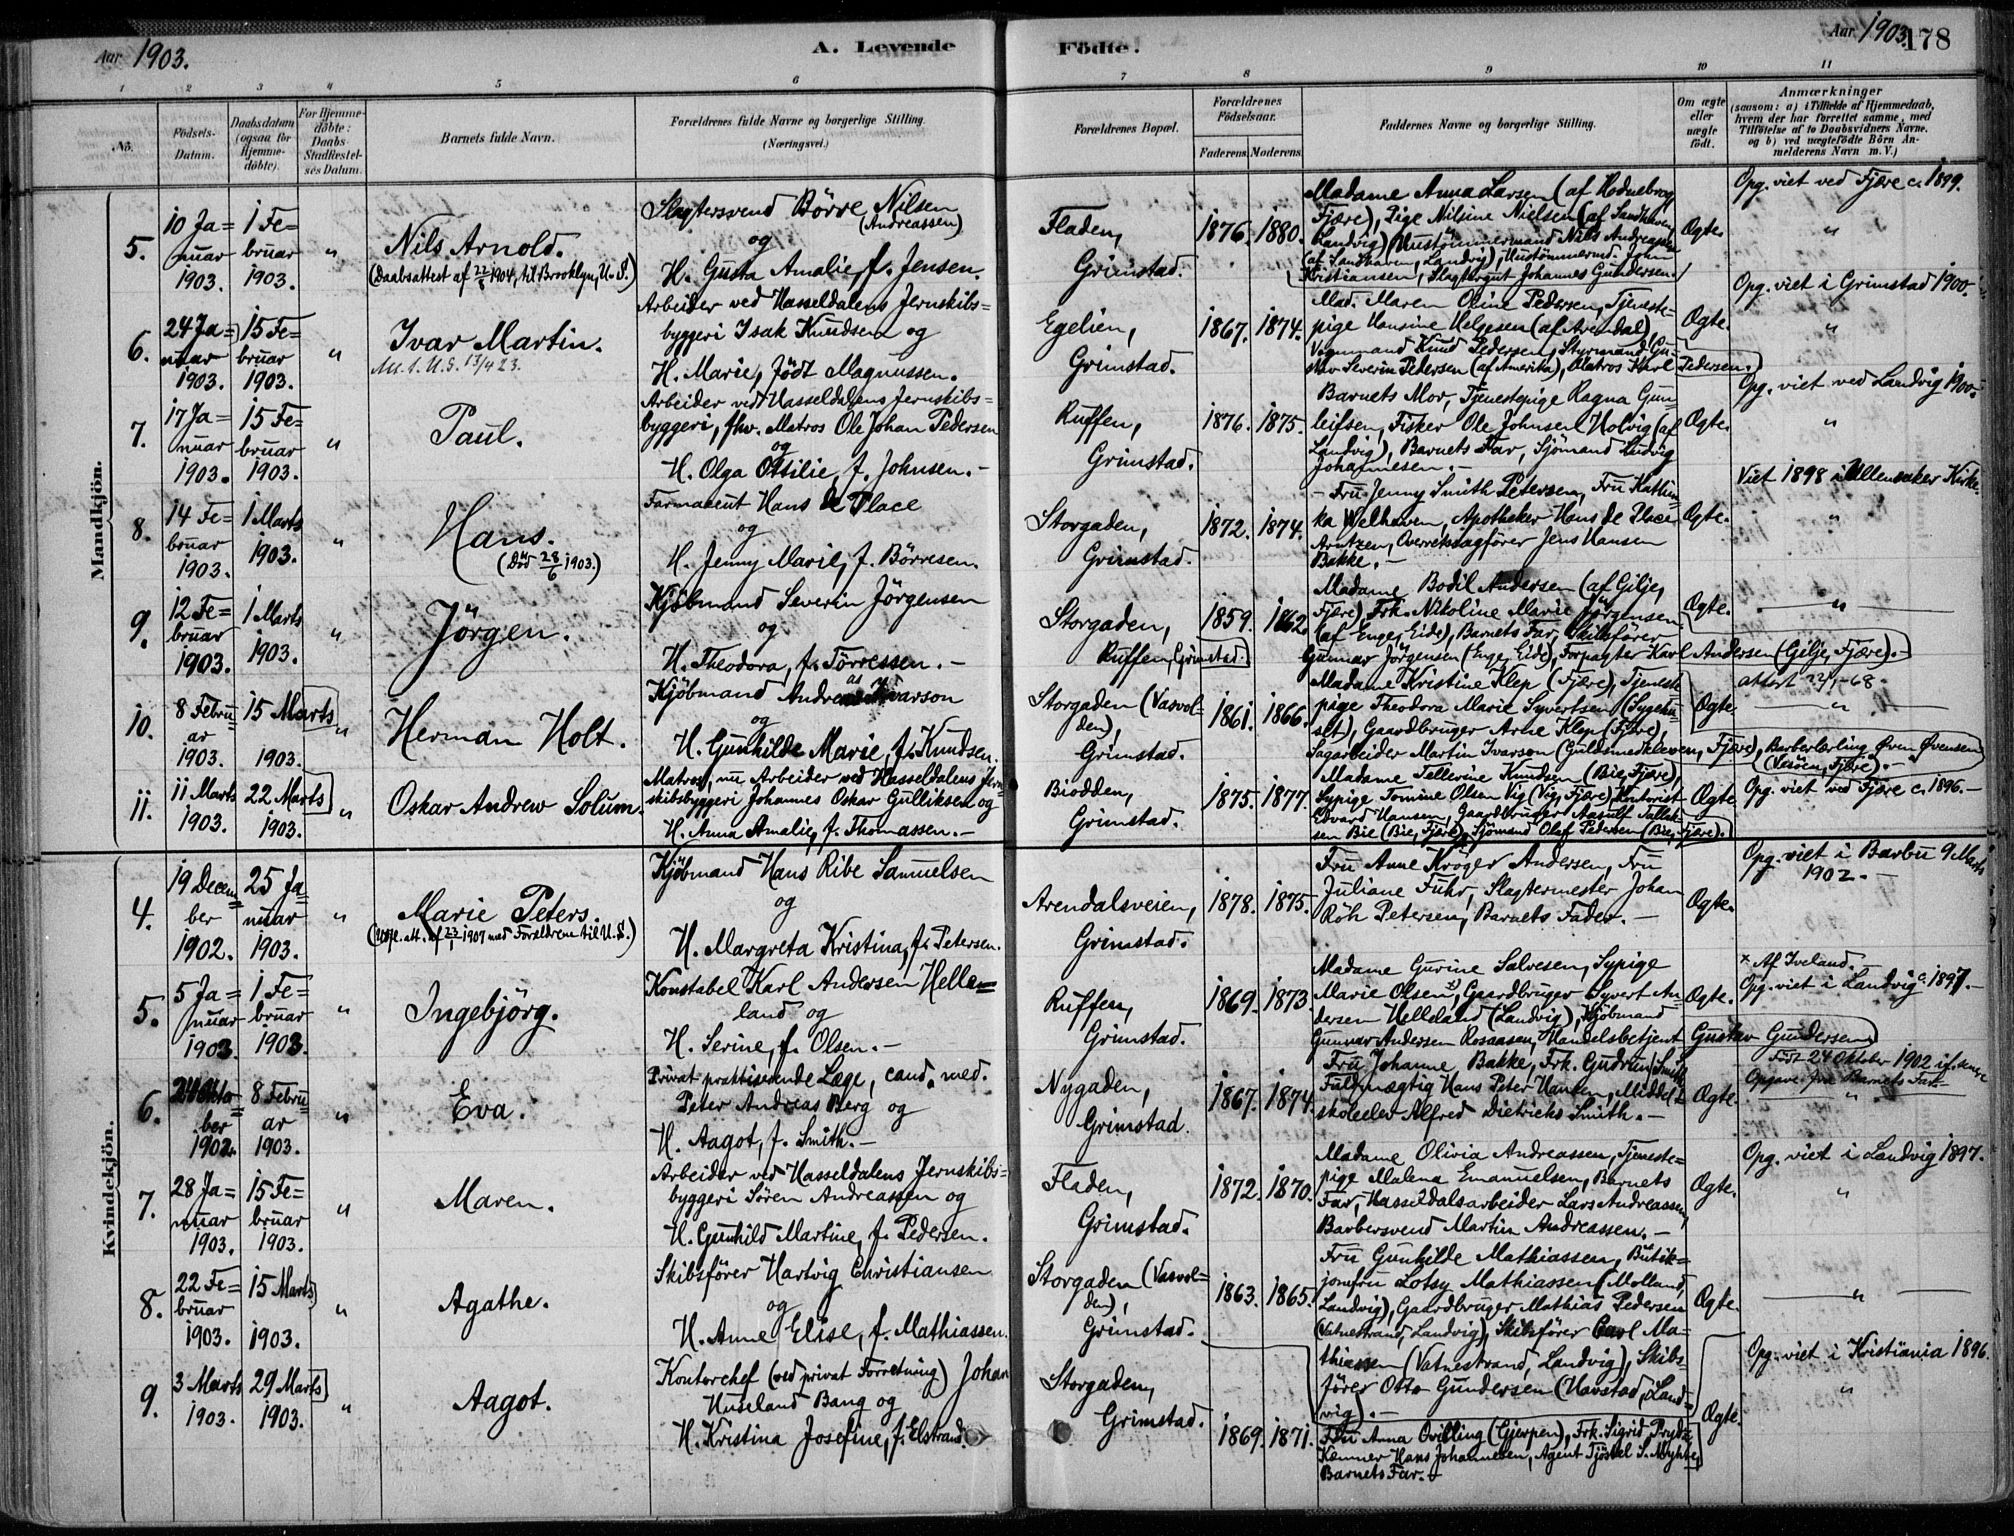 Aar 1903.
A. Levende Födte.
Aar 1903.
178
1 2 3 4 5 6 7 8 9 10 11
No.
Födsels-Datum.
Daabsdatum (ogsaa for Hjemme-döbte).
For Hjemme-döbte: Daabs-Stadfæstel-ses Datum.
Barnets fulde Navn.
Forældrenes fulde Navne og borgerlige Stilling. (Næringsvei.)
Forældrenes Bopæl.
Forældrenes Födselsaar.
Faderens. Moderens.
Faddernes Navne og borgerlige Stilling.
Om ægte eller uægte födt.
Anmærkninger
(saasom: a) i Tilfælde af Hjemmedaab, hvem der har forrettet samme, med Tilföielse af to Daabsvidners Navne, og b) ved uægtefödte Börn An-melderens Navn m. V.)
Mandkjön.
5.
10 Ja=
nuar
1903.
1 Fe=
bruar
1903.
"
Nils Arnold.
(Daabsattest af 22/ 1904, til Brooklyn, U. S.)
Slagtersvend Börre Nilsen
(Andreassen)
og
H. Gusta Amalie, f. Jensen.
Fladen,
Grimstad.
1876. 1880.
Madame Anna Larsen (af Hodnebrog
Fjære), Pige Nilsine Nielsen (af Landhaven,
Landvig), Hustömmermand Nils Andreassen
(af Landhaven, Landvig), Hustömmermd. John
Kristiansen, Slagtergut Johannes Gundersen.
Ægte.
Opg. viet ved Fjære c. 1899.
"
6.
24 Ja=
nuar
1903.
15 Fe=
bruar
1903.
"
Ivar Martin.
13/4 23.
Arbeider ved Hasseldalens Jernskibs=
byggeri Isak Knudsen og
H. Marie, födt Magnussen.
Egelien,
Grimstad.
1867. 1874.
Mad. Maren Oline Pedersen, Tjeneste=
pige Hansine Helgesen (af Arendal),
Vognmand Knud Pedersen, Styrmand Gu=
stav Severin Pedersen (af Amerika), Matros Karl Pedersen.
Ægte.
Opg. viet i Grimstad 1900.
"
7.
17 Ja=
nuar
1903.
15 Fe=
bruar
1903.
"
Paul.
Arbeider ved Hasseldalens Jernskibs=
byggeri, fhv. Matros Ole Johan Pedersen
og
H. Olga Ottilie, f. Johnsen. -
Ruffen,
Grimstad.
1876. 1875.
Barnets Mor, Tjenestepige Ragna Gun=
leifsen, Fisker Ole Johnsen Holvig (af
Landvig), Barnets Far, Sjömand Ludvig
Johannesen. -
Ægte.
Opg. viet ved Landvig 1900.
"
8.
14 Fe=
bruar
1903.
1 Marts
1903.
"
Hans.
(Död 28/6 1903.)
Farmaceut Hans de Place
og
H. Jenny Marie, f. Börresen.
Storgaden,
Grimstad.
1872. 1874.
- Fru Jenny Smith Petersen, Fru Kathin=
ka Welhaven, Apotheker Hans de Place
Arntzen, Overretssagförer Jens Hansen
Bakke. -
Ægte.
Viet 1898 i Ullensaker Kirke.
"
9.
12 Fe=
bruar
1903.
1 Marts
1903.
"
Jörgen.
Kjöbmand Severin Jörgensen
og
H. Theodora, f. Törressen. -
Storgaden,
Ruffen, Grimstad.
1859. 1862.
Madame Bodil Andersen (af Gilje,
Fjære), Frk. Nikoline Marie Jörgensen
(af Enge, Eide), Barnets Far, Skibsförer
Gunnar Jörgensen (Enge, Eide), Forpagter Karl Andersen (Gilje, Fjære). -
Ægte.
"
10.
8 Febru=
ar
1903.
15 Marts
1903.
"
Herman Holt.
Kjöbmand Andreas Ivarson
og
H. Gunhilde Marie, f. Knudsen.
Storgaden (Vasvol=
den),
Grimstad.
1861. 1866.
Madame Kristine Klep (Fjære), Tjeneste=
pige Theodora Marie Syvertsen (Sygehu=
set), Gaardbruger Arne Klep (Fjære),
Sagarbeider Martin Ivarson (Guldsmedkleven, Fjære), Barberlærling Öven Övensen
(Vessöen, Fjære). -
Ægte.
attest 22/1-68.
"
11.
11 Marts
1903.
22 Marts
1903.
"
Oskar Andrew Solum.
Matros, nu Arbeider ved Hasseldalens Jern
skibsbyggeri Johannes Oskar Gulliksen og
H. Anna Amalie, f. Thomassen. -
Brodden,
Grimstad.
1875. 1877.
Madame Tellevine Knudsen (Bie, Fjære),
Sypige Tomine Olsen Vig (Vig, Fjære), Kontorist
Edvard Hansen, Gaardbruger Aasulf Tallak=
sen Bie (Bie, Fjære), Sjömand Olaf Pedersen (Bie, Fjære).
Ægte.
Opg. viet ved Fjære c. 1896. -
Kvindekjön.
4.
19 Decem=
ber
1902.
25 Ja=
nuar
1903.
"
Marie Peters.
(Udfl. att. af 23/ 1907 med Forældrene til U. S.)
Kjöbmand Hans Ribe Samuelsen
og
H. Margreta Kristina, f. Petersen.
Arendalsveien,
Grimstad.
1878. 1875.
Fru Anne Kröger Andersen, Fru
Juliane Fuhr, Slagtermester Johan
Röh Petersen, Barnets Fader. -
Ægte.
Opg. viet i Barbu 9 Marts
1902. -
5.
5 Ja=
nuar
1903.
1 Fe=
bruar
1903.
"
Ingebjörg.
Konstabel Karl Andersen Helle=
land og
H. Serine, f. Olsen. -
Ruffen,
Grimstad.
1869. 1873.
Madame Gurine Salvesen, Sypige
Marie Olsen x), Gaardbruger Syvert An
dersen Helleland (Landvig), Kjöbmand
Gunvar Andersen Rosaasen, Handelsbetjent Gustav Gundersen.
Ægte.
x Af Iveland.
Opg. viet i Landvig c. 1897. -
6.
24 Okto=
ber
1902.
8 Febru=
ar
1903.
"
Eva.
Privat praktiserende Læge, cand. med.
Peter Andreas Berg og
H. Aagot, f. Smith. -
Nygaden,
Grimstad.
1867. 1874.
Fru Johanne Bakke, Frk. Gudrun Smith,
Fuldmægtig Hans Peter Hanke, Middel=
skoleelev Alfred Dietrichs Smith. -
Ægte.
Födt 24 Oktober 1902 if. senere
Opgave fra Barnets Far
"
7.
28 Ja=
nuar
1903.
15 Fe=
bruar
1903.
"
Maren.
Arbeider ved Hasseldalens Jernskibs=
byggeri Sören Andreassen og
H. Gunhild Martine, f. Pedersen.
Fladen,
Grimstad.
1872. 1870.
Madame Olivia Andreassen, Tjeneste=
pige Malena Emanuelsen, Barnets
Far, Hasseldalsarbeider Lars Andreassen,
Barbersvend Martin Andreassen. -
Ægte.
Opg. viet i Landvig 1897.
"
8.
22 Fe=
bruar
1903.
15 Marts
1903.
"
Agathe.
Skibsförer Hartvig Christiansen
og
H. Anne Elise, f. Mathiassen.
Storgaden (Vasvol=
den),
Grimstad.
1863. 1865.
Fru Gunhilde Mathiassen, Butik=
jomfru Lotsy Mathiassen (Molland,
Landvig), Gaardbruger Mathias Pedersen
(Vatnestrand, Landvig), Skibsförer Carl Ma=
thiassen (Vatnestrand, Landvig), Skibs
förer Otto Gundersen (Havstad, Land=
vig). -
Ægte.
"
9.
3 Marts
1903.
29 Marts
1903.
"
Aagot.
Kontorchef (ved privat Forretning) Johan
Huseland Bang og
H. Kristina Josefine, f. Elstrand.
Storgaden,
Grimstad.
1869. 1871.
Fru Anna Qvilling (Gjerpen), Frk. Sigrid Prydz,
Kæmner Hans Johannesen, Agent Tjöstel S. Myhre,
Barnets Far. -
Ægte.
Opg. viet i Kristiania 1896.
"